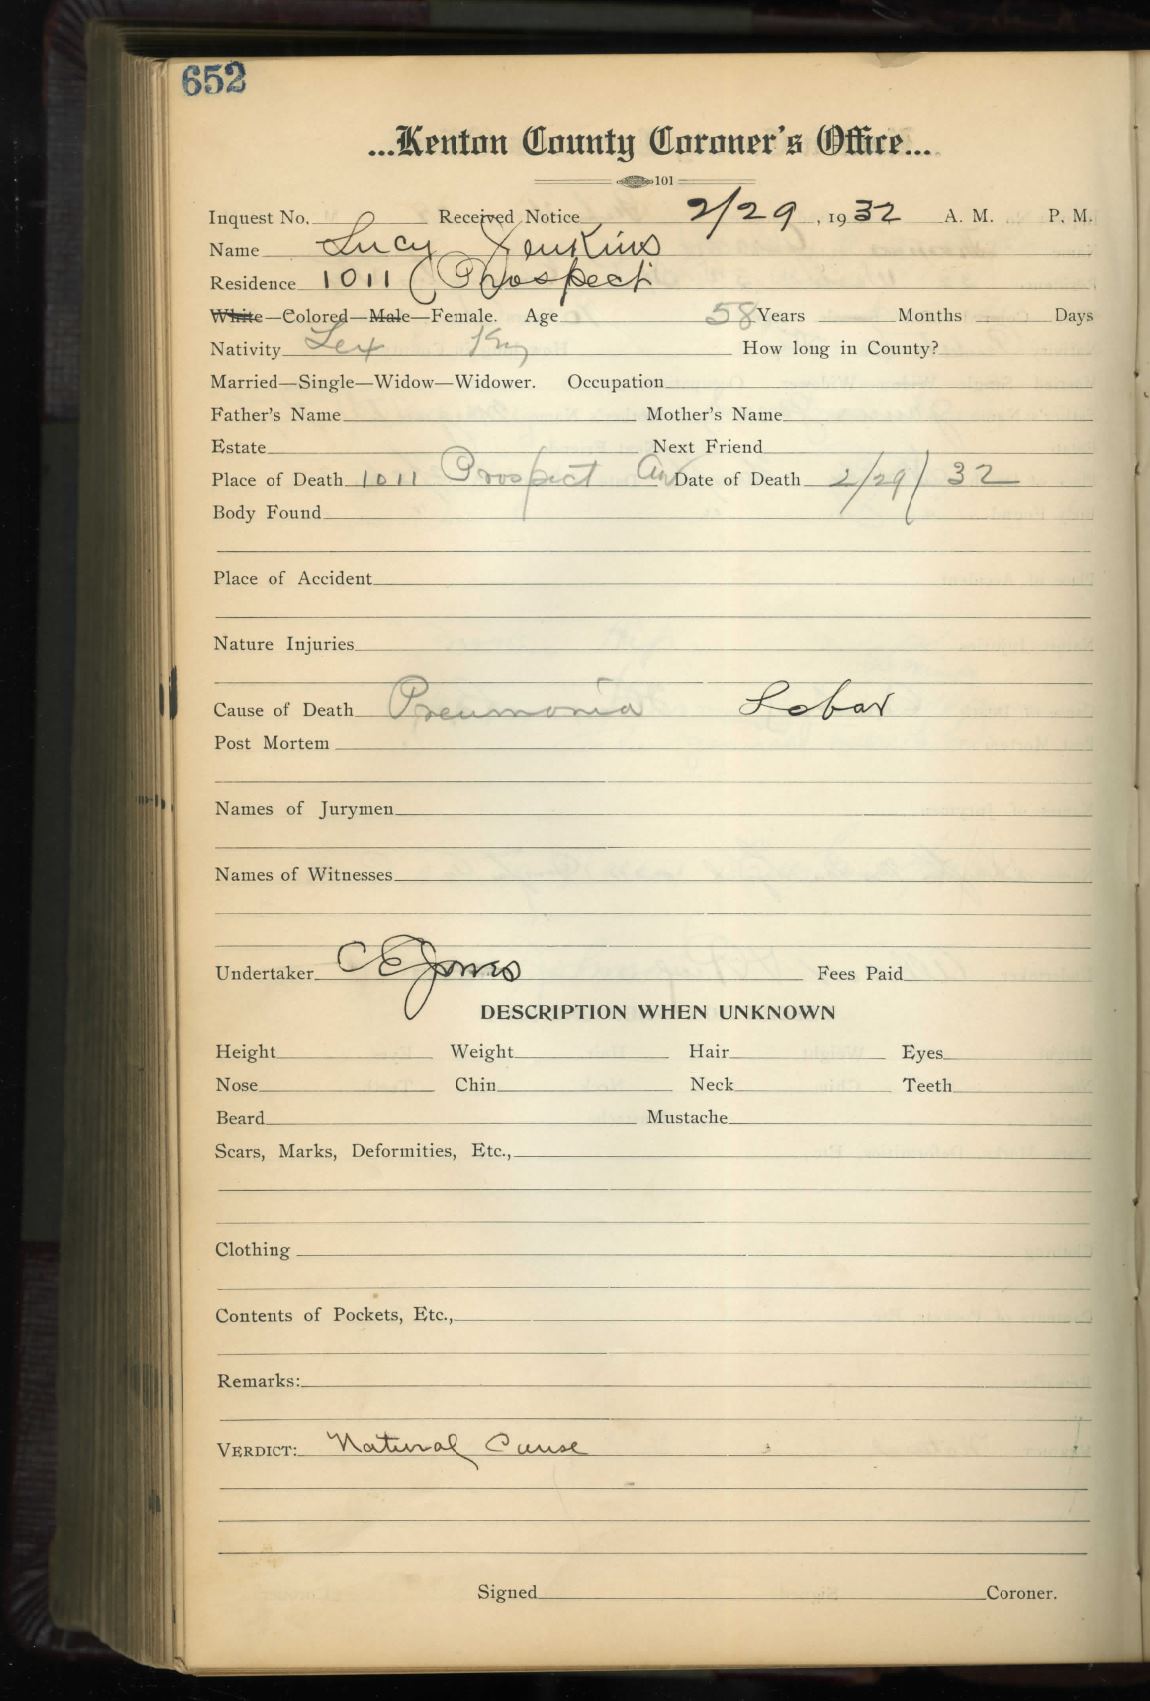 652
...Kenton County Coroner's Office...
101
Inquest No. Received Notice 2/29, 1932 A. M. P. M.
Name Lucy Jenkins
Residence 1011 Prospect
White—Colored—Male—Female. Age 58 Years Months Days
Nativity Lex Ky How long in County?
Married—Single—Widow—Widower. Occupation
Father's Name Mother's Name
Estate Next Friend
Place of Death 1011 Prospect Av Date of Death 2/29/32
Body Found
Place of Accident
Nature Injuries
Cause of Death Pneumonia Lobar
Post Mortem
Names of Jurymen
Names of Witnesses
Undertaker C E Jones Fees Paid
DESCRIPTION WHEN UNKNOWN
Height Weight Hair Eyes
Nose Chin Neck Teeth
Beard Mustache
Scars, Marks, Deformities, Etc.,
Clothing
Contents of Pockets, Etc.,
Remarks:
VERDICT: Natural Cause
Signed Coroner.